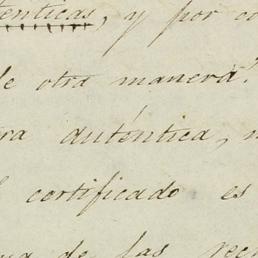 tenticas, y por co
de otra manera?
ra auténtica, n
l certificado es
ua de las rec